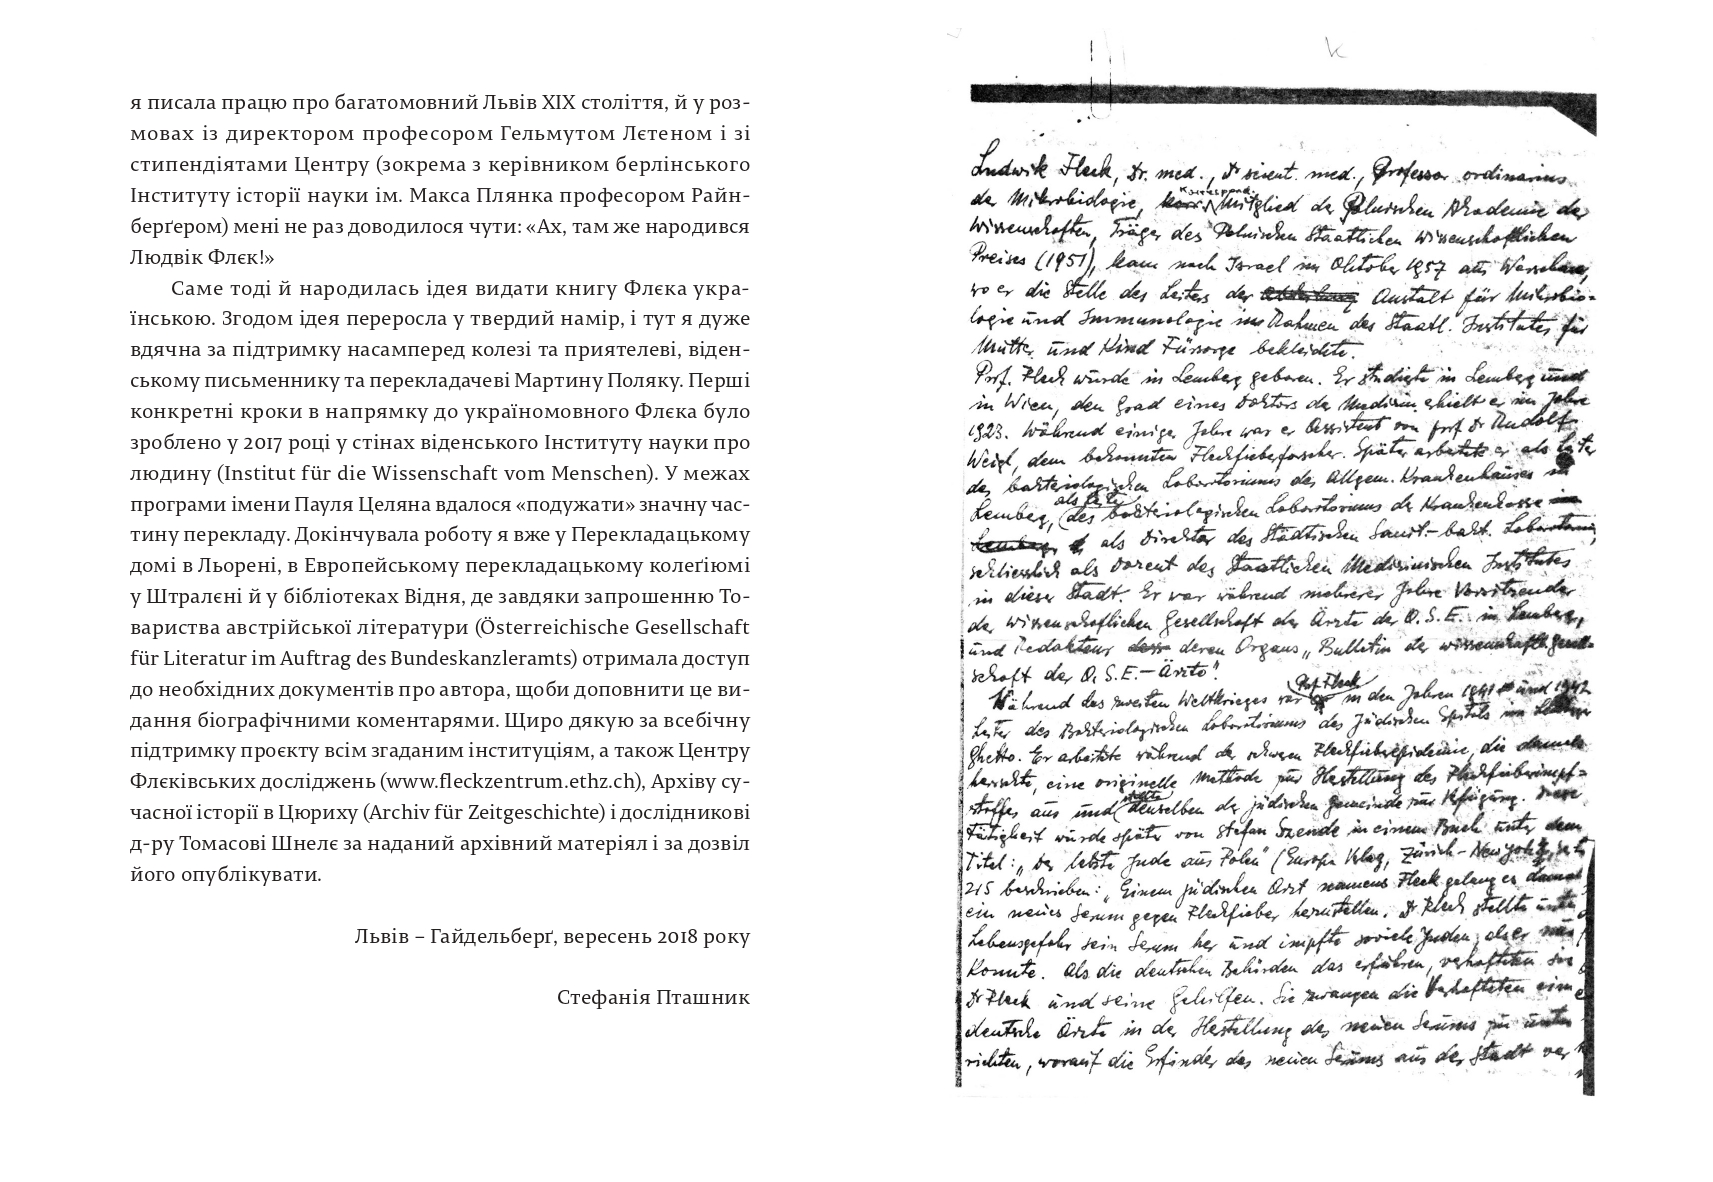 я писала працю про багатомовний Львів XIX століття, й у роз-
мовах із директором професором Гельмутом Лєтеном і зі
стипендіятами Центру (зокрема з керівником берлінського
Інституту історії науки ім. Макса Плянка професором Райн-
берґером) мені не раз доводилося чути: «Ах, там же народився
Людвік Флєк!»
Саме тоді й народилась ідея видати книгу Флєка укра-
їнською. Згодом ідея переросла у твердий намір, і тут я дуже
вдячна за підтримку насамперед колезі та приятелеві, віден-
ському письменнику та перекладачеві Мартину Поляку. Перші
конкретні кроки в напрямку до україномовного Флєка було
зроблено у 2017 році у стінах віденського Інституту науки про
людину (Institut für die Wissenschaft vom Menschen). У межах
програми імени Пауля Целяна вдалося «подужати» значну час-
тину перекладу. Докінчувала роботу я вже у Перекладацькому
домі в Льорені, в Европейському перекладацькому колеґіюмі
у Штралєні й у бібліотеках Відня, де завдяки запрошенню То-
вариства австрійської літератури (Österreichische Gesellschaft
für Literatur im Auftrag des Bundeskanzleramts) отримала доступ
до необхідних документів про автора, щоби доповнити це ви-
дання біографічними коментарями. Щиро дякую за всебічну
підтримку проєкту всім згаданим інституціям, а також Центру
Флєківських досліджень (www.fleckzentrum.ethz.ch), Архіву су-
часної історії в Цюриху (Archiv für Zeitgeschichte) і дослідникові
д-ру Томасові Шнелє за наданий архівний матеріял і за дозвіл
його опублікувати.
Львів – Гайдельберґ, вересень 2018 року
Стефанія Пташник
Ludwik Fleck, Dr. med., Dr scient. med., Professor ordinarius
der Mikrobiologie, Korrespond. Mitglied der Polnischen Akademie der
Wissenschaften, Träger des Polnischen Staatlichen Wissenschaftlichen
Preises (1951), kam nach Israel im Oktober 1957 aus Warschau,
wo er die Stelle des Leiters der Anstalt für Mikrobio-
logie und Immunologie im Rahmen des Staatl. Institutes für
Mutter und Kind Fürsorge bekleidete.
Prof. Fleck wurde in Lemberg geboren. Er studierte in Lemberg und
in Wien, den Grad eines Doktors der Medizin erhielt er im Jahre
1923. Während einiger Jahre war er Assistent von prof Dr Rudolf
Weigl, dem bekannten Fleckfieberforscher. Später arbeitete er als Leiter
des bakteriologischen Laboratoriums des Allgem. Krankenhauses in
Lemberg, als Leiter des bakteriologischen Laboratoriums der Krankenkasse
als Direktor des Städtischen Sanit.-bakt. Laboratoriums,
schliesslich als Dozent des Staatlichen Medizinischen Institutes
in dieser Stadt. Er war während mehrerer Jahre Vorsitzender
der wissenschaftlichen Gesellschaft der Ärzte der O.S.E. in Lemberg,
und Redakteur deren Organs „Bulletin der wissenschaftl. Gesell-
schaft der O.S.E.-Ärzte".
Während des zweiten Weltkrieges war Prof. Fleck in den Jahren 1941 und 1942
Leiter des Bakteriologischen Laboratoriums des Jüdischen Spitals im
Ghetto. Er arbeitete während der schweren Fleckfieberepidemie, die damals
herrschte, eine originelle Methode zur Herstellung des Fleckfieberimpf-
stoffes aus und stellte denselben der jüdischen Gemeinde zur Verfügung. Diese
Tätigkeit wurde später von Stefan Szende in einem Buch unter dem
Titel: „Der letzte Jude aus Polen" (Europa Verlag, Zürich-New York),
215 beschrieben: „Einem jüdischen Arzt namens Fleck gelang es damals
ein neues Serum gegen Fleckfieber herzustellen. Dr Fleck stellte unter
Lebensgefahr sein Serum her und impfte soviele Juden, als er nur
konnte. Als die deutschen Behörden das erfuhren, verhafteten sie
Dr Fleck und seine Gehilfen. Sie zwangen die Verhafteten
deutsche Ärzte in der Herstellung des neuen Serums zu unter-
richten, worauf die Erfinder des neuen Serums aus der Stadt ver